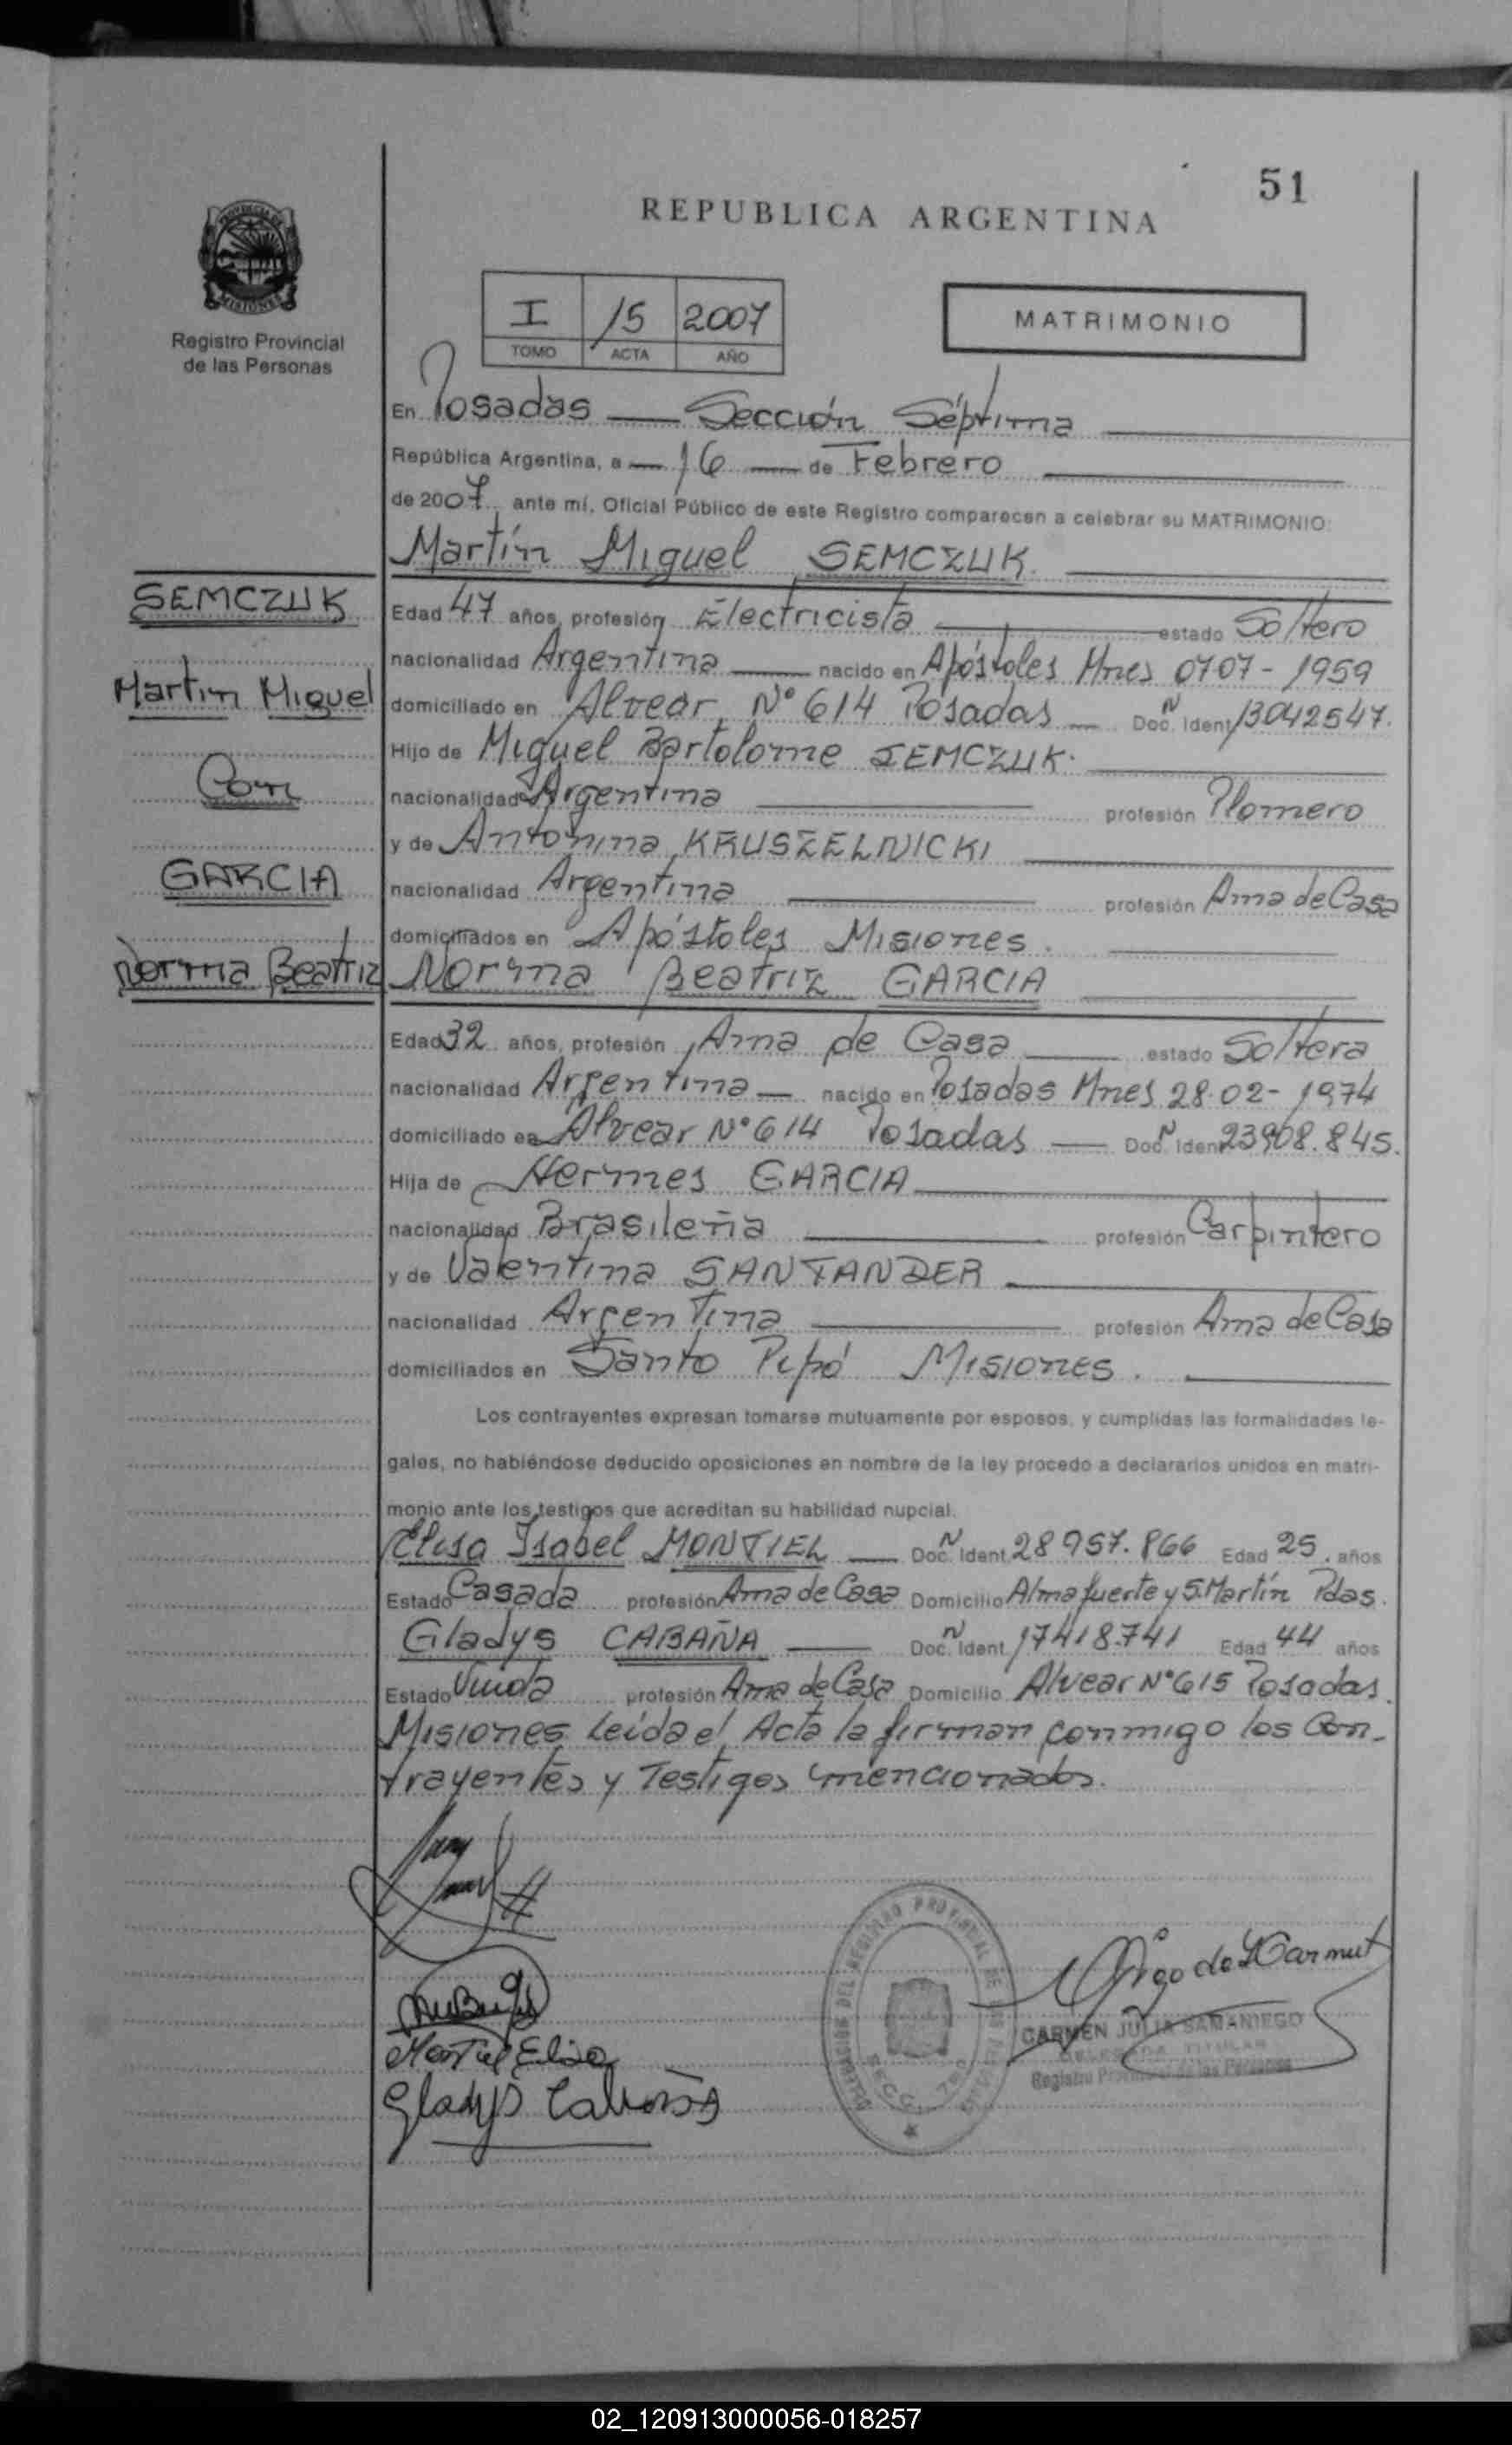 51
REPUBLICA ARGENTINA
PROVINCIA DE
MISIONES
Registro Provincial
de las Personas
I 15 2007
TOMO ACTA AÑO
MATRIMONIO
En Posadas — Sección Séptima
República Argentina, a — 16 — de Febrero
de 2007 ante mí, Oficial Público de este Registro comparecen a celebrar su MATRIMONIO:
Martín Miguel SEMCZUK
SEMCZUK
Martin Miguel
Con
GARCIA
Norma Beatriz
Edad 47 años, profesión Electricista estado Soltero
nacionalidad Argentina — nacido en Apóstoles Mnes 0707-1959
domiciliado en Alvear Nº 614 Posadas — Doc. N Ident 13042547.
Hijo de Miguel Bartolome SEMCZUK.
nacionalidad Argentina profesión Plomero
y de Antonina KRUSZELNICKI
nacionalidad Argentina profesión Ama de Casa
domiciliados en Apóstoles Misiones.
Norma Beatriz GARCIA
Edad 32 años, profesión Ama de Casa estado Soltera
nacionalidad Argentina — nacido en Posadas Mnes 28-02-1974
domiciliado en Alvear Nº 614 Posadas — Doc. N Ident 23908.845.
Hija de Hermes GARCIA
nacionalidad Brasileña profesión Carpintero
y de Valentina SANTANDER
nacionalidad Argentina profesión Ama de Casa
domiciliados en Santo Pipó Misiones.
Los contrayentes expresan tomarse mutuamente por esposos, y cumplidas las formalidades le-
gales, no habiéndose deducido oposiciones en nombre de la ley procedo a declararlos unidos en matri-
monio ante los testigos que acreditan su habilidad nupcial.
Elisa Isabel MONTIEL — Doc. N Ident 28957.866 Edad 25 años
Estado Casada profesión Ama de Casa Domicilio Almafuerte y S.Martín Pdas.
Gladys CABAÑA — Doc. N Ident 17418741 Edad 44 años
Estado Viuda profesión Ama de Casa Domicilio Alvear Nº 615 Posadas.
Misiones Leida el Acta la firman conmigo los Con-
trayentes y Testigos mencionados.
Montiel Elisa
Gladys Cabaña
CARMEN JULIA SAMANIEGO
DELEGADA TITULAR
Registro Provincial de las Personas
02_120913000056-018257